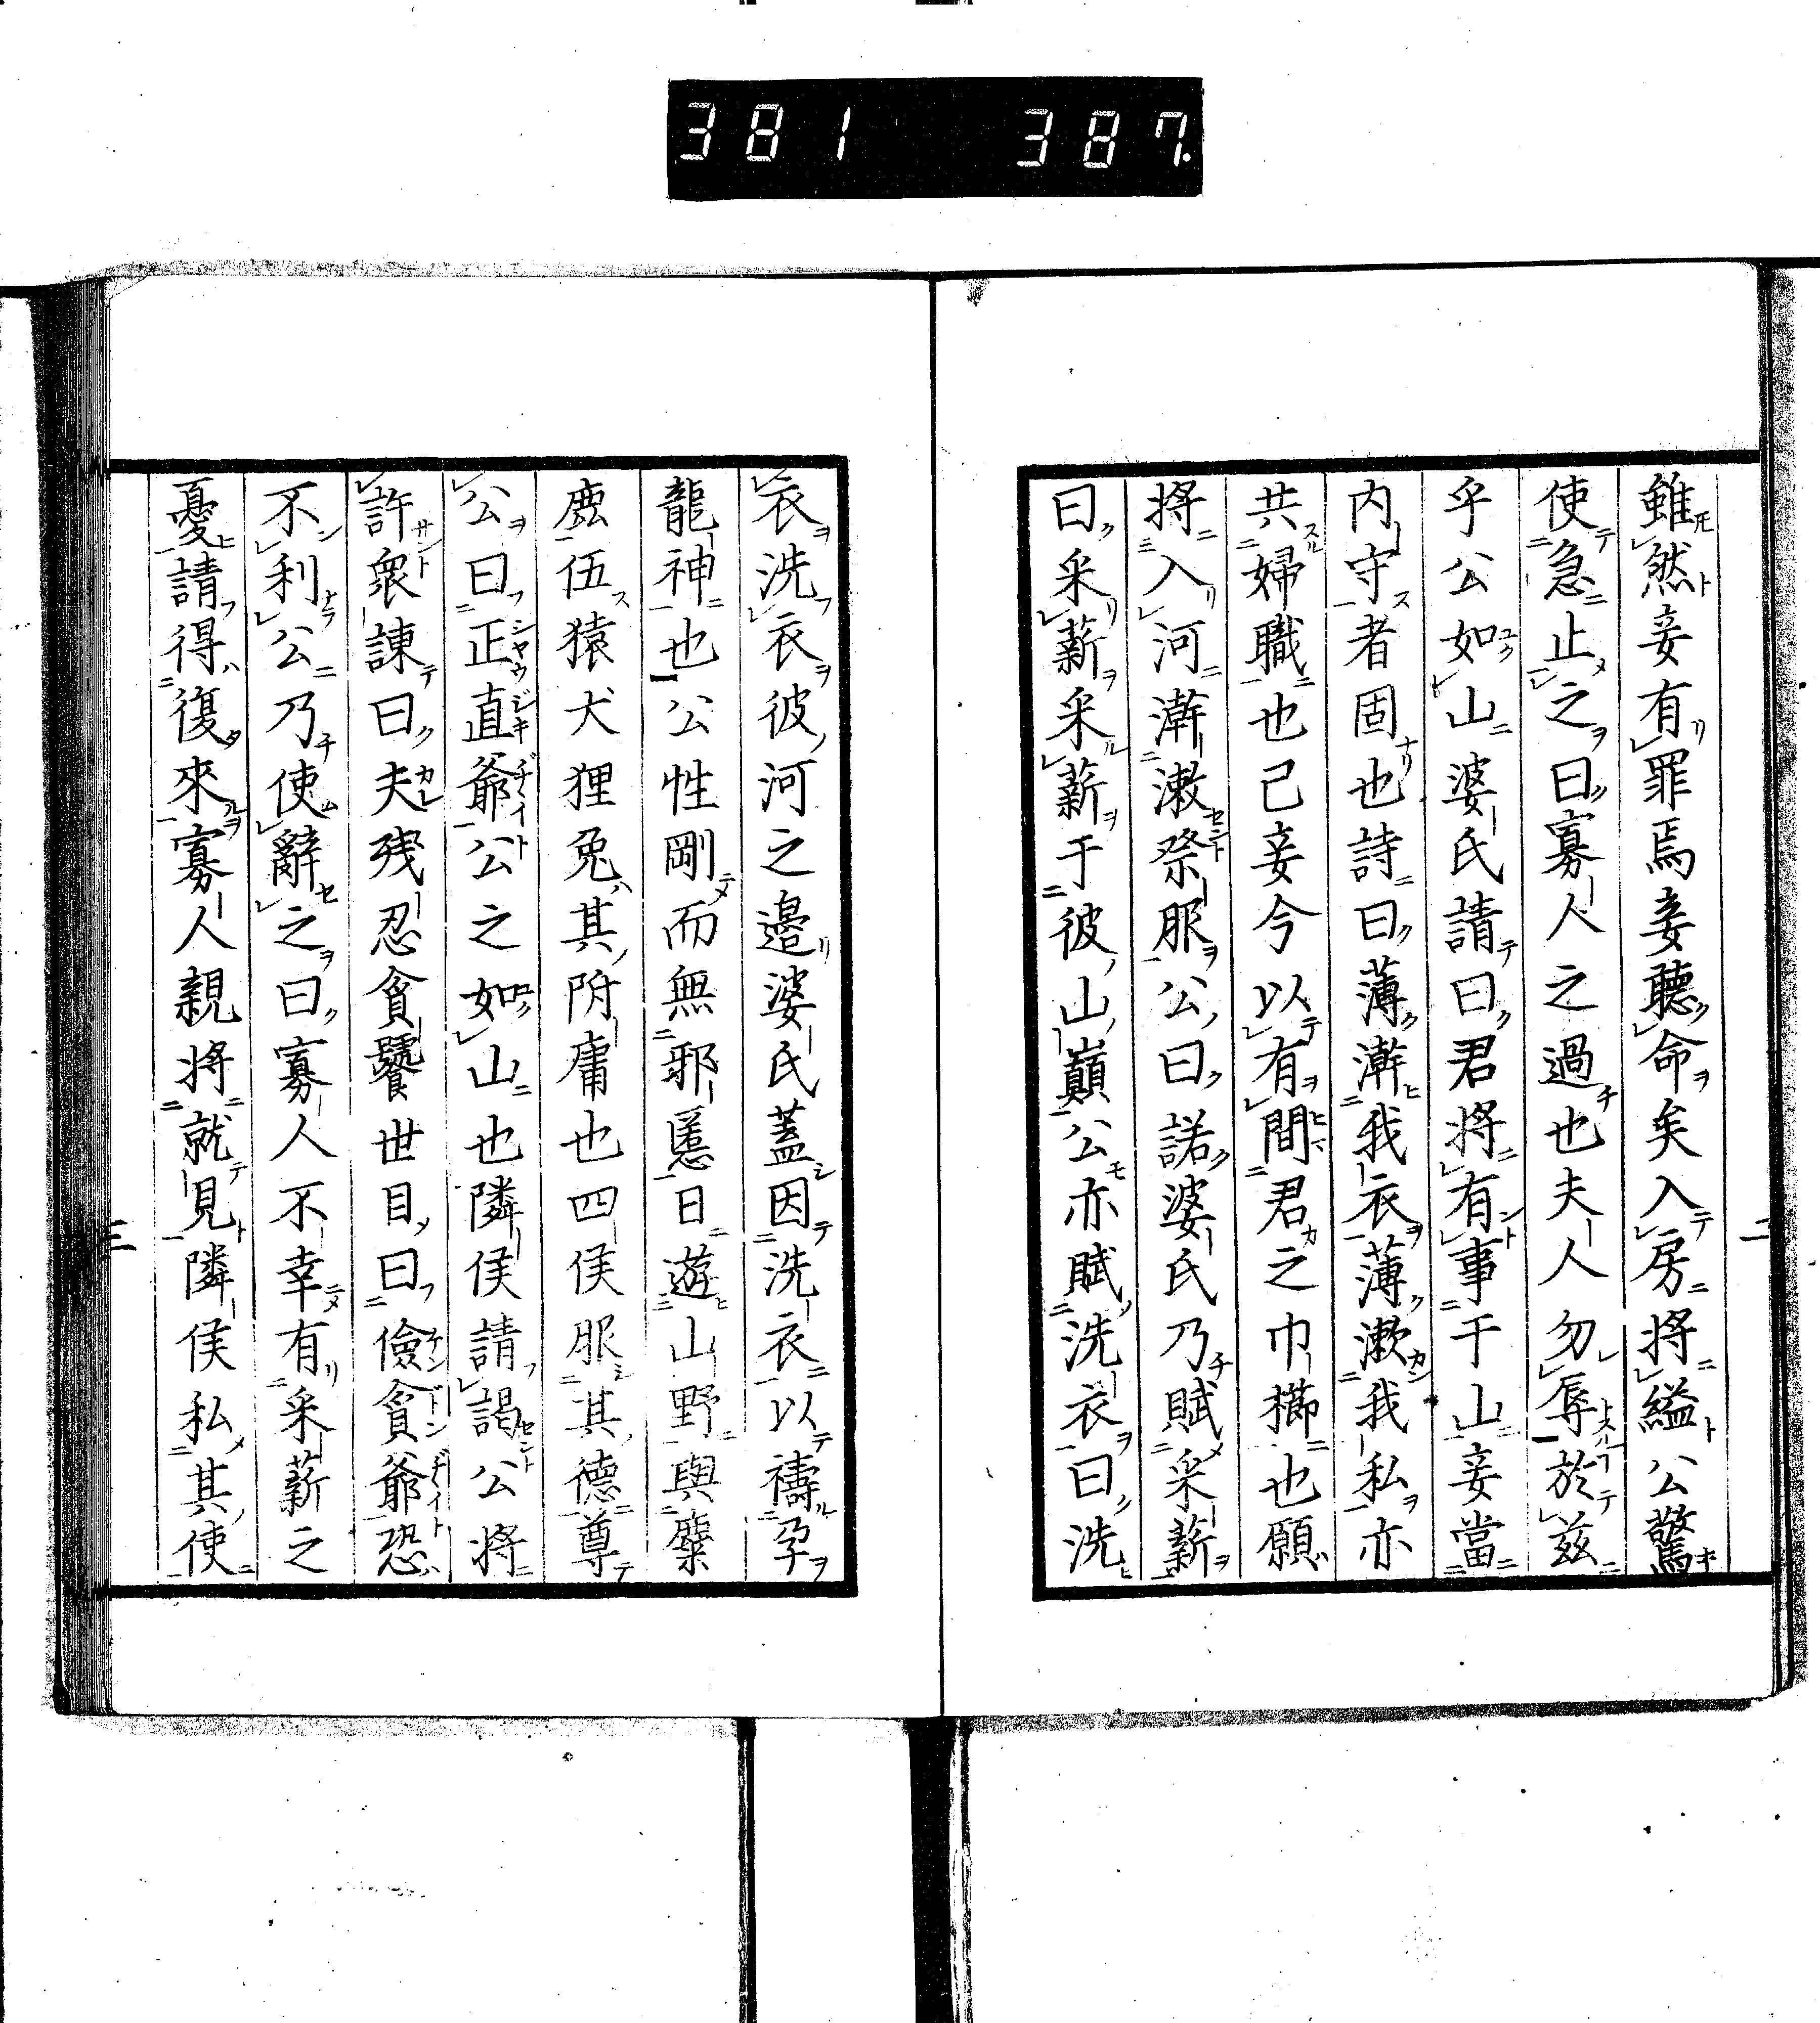 381 387
雖然妾有罪焉妾聽命矣入房將縊公驚
使急止之曰寡人之過也夫人勿辱於茲
乎公如山婆氏請曰君將有事于山妾當
內守者固也詩曰薄澣我衣薄漱我私亦
共婦職也已妾今以有間君之巾櫛也願
將入河澣漱祭服公曰諾婆氏乃賦采薪
曰采薪采薪于彼山巔公亦賦洗衣曰洗
二
衣洗衣彼河之邊婆氏蓋因洗衣以禱孕
龍神也公性剛而無邪慝日遊山野與麋
鹿伍猿犬狸兔其附庸也四侯服其德尊
公曰正直爺公之如山也隣侯請謁公將
許衆諫曰夫殘忍貪饕世目曰儉貪爺恐
不利公乃使辭之曰寡人不幸有采薪之
憂請得復來寡人親將就見隣侯私其使
三